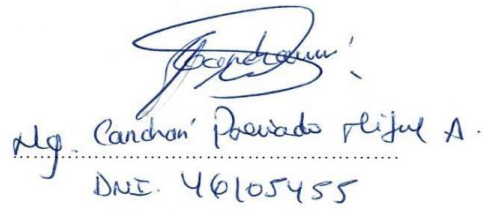 Mg. Canchari Preciado Miguel A.
DNI. 46105455